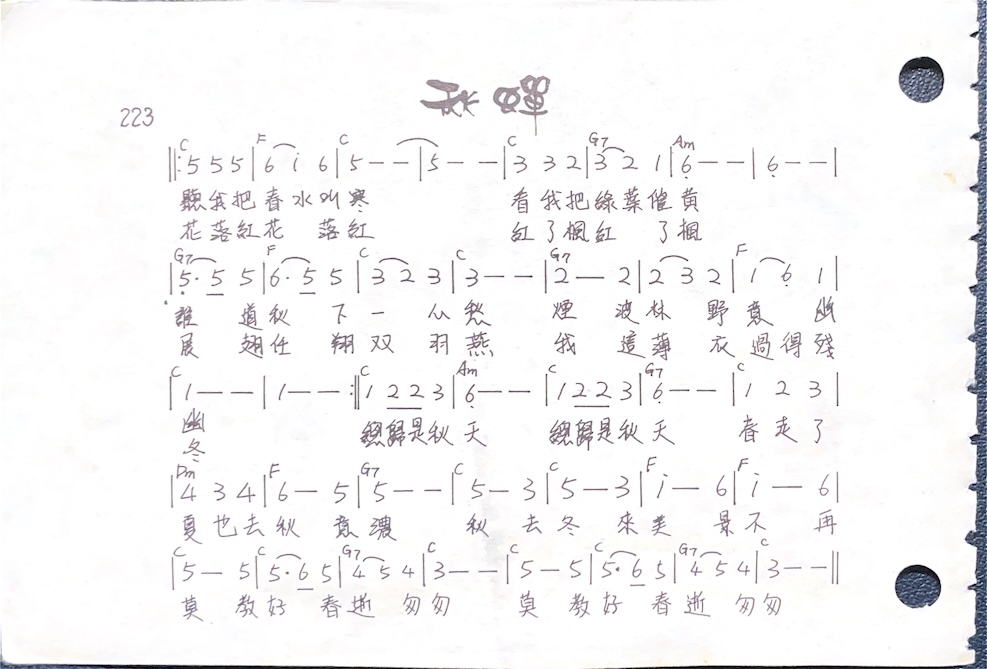 秋蟬
223
C F C C G7 Am
‖: 5 5 5 | 6 i 6 | 5 — — | 5 — — | 3 3 2 | 3 2 1 | 6̣ — — | 6̣ — — |
聽我把春水叫寒 看我把綠葉催黄
花落紅花 落紅 紅了楓紅 了楓
G7 F C C G7 F
| 5̣· 5 5 | 6· 5 5 | 3 2 3 | 3 — — | 2 — 2 | 2 3 2 | 1 6̣ 1 |
誰 道秋 下一 心愁 煙 波林 野意 幽
展 翅任 翔双 羽燕 我 這薄 衣過得殘
C C Am C G7 C
| 1 — — | 1 — — :‖ 1 2 2 3 | 6̣ — — | 1 2 2 3 | 6̣ — — | 1 2 3 |
幽 總歸是秋天 總歸是秋天 春走了
冬
Dm F G7 C C F F
| 4 3 4 | 6 — 5 | 5 — — | 5 — 3 | 5 — 3 | i — 6 | i — 6 |
夏也去秋 意濃 秋 去冬 來美 景不 再
C C G7 C C C G7 C
| 5 — 5 | 5· 6 5 | 4 5 4 | 3 — — | 5 — 5 | 5· 6 5 | 4 5 4 | 3 — — ‖
莫 教好 春逝 匆匆 莫 教好 春逝 匆匆